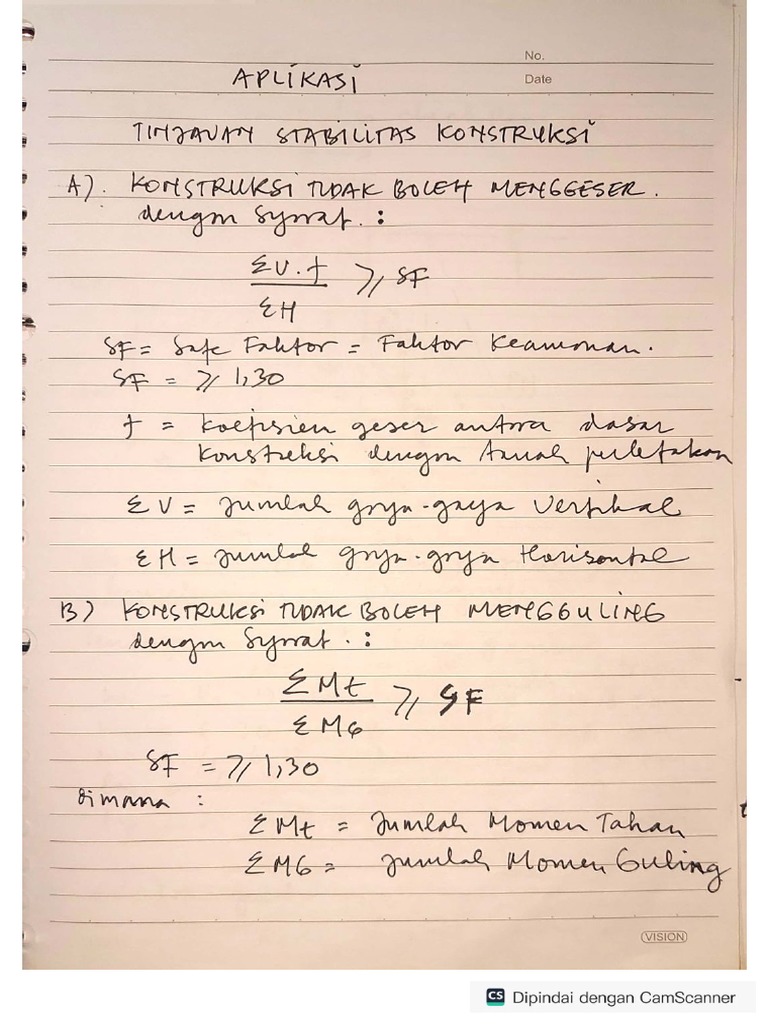 No.
APLIKASI
Date
TINJAUAN STABILITAS KONSTRUKSI
A). KONSTRUKSI TIDAK BOLEH MENGGESER.
dengan Syarat. :
ΣV.f / ΣH ≥ SF
SF = Safe Faktor = Faktor Keamanan.
SF = ≥ 1,30
f = Koefisien geser antara dasar
Konstruksi dengan tanah perletakan
ΣV = Jumlah gaya-gaya Vertikal
ΣH = Jumlah gaya-gaya Horisontal
B) KONSTRUKSI TIDAK BOLEH MENGGULING
dengan Syarat. :
ΣMt / ΣMG ≥ SF
SF = ≥ 1,30
dimana :
ΣMt = Jumlah Momen Tahan
ΣMG = Jumlah Momen Guling
VISION
CS Dipindai dengan CamScanner